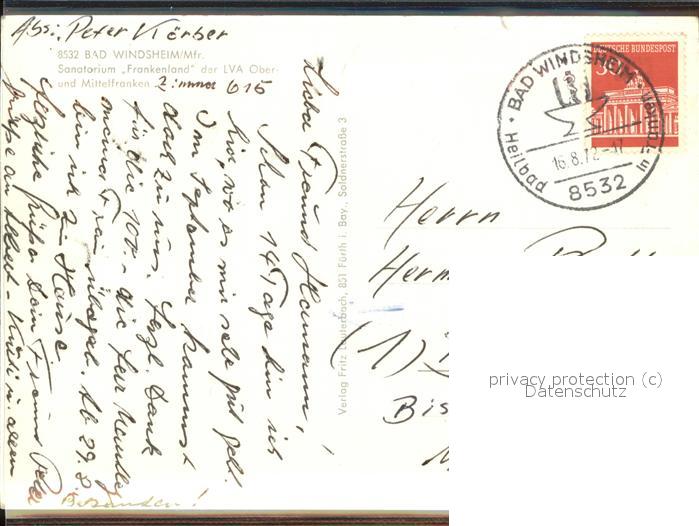 Abs. Peter Körber
8532 BAD WINDSHEIM/Mfr.
Sanatorium „Frankenland" der LVA Ober-
und Mittelfranken Zimmer 615
Lieber Freund Hermann,
Schon 14 Tage bin ich
hier, wo es mir sehr gut geht.
Im September kommst
doch zu uns. Herzl. Dank
für die 100.- die
meiner Frau Ab 29. 8.
bin ich zu Hause
Herzliche Grüße Dein Freund Peter
Grüße an
Verlag Fritz Lauterbach, 851 Fürth i. Bay., Soldnerstraße 3
DEUTSCHE BUNDESPOST
BAD WINDSHEIM
Heilbad in Franken
16.8.72-17
8532
Herrn
Herm
(1)
Bis
privacy protection (c)
Datenschutz